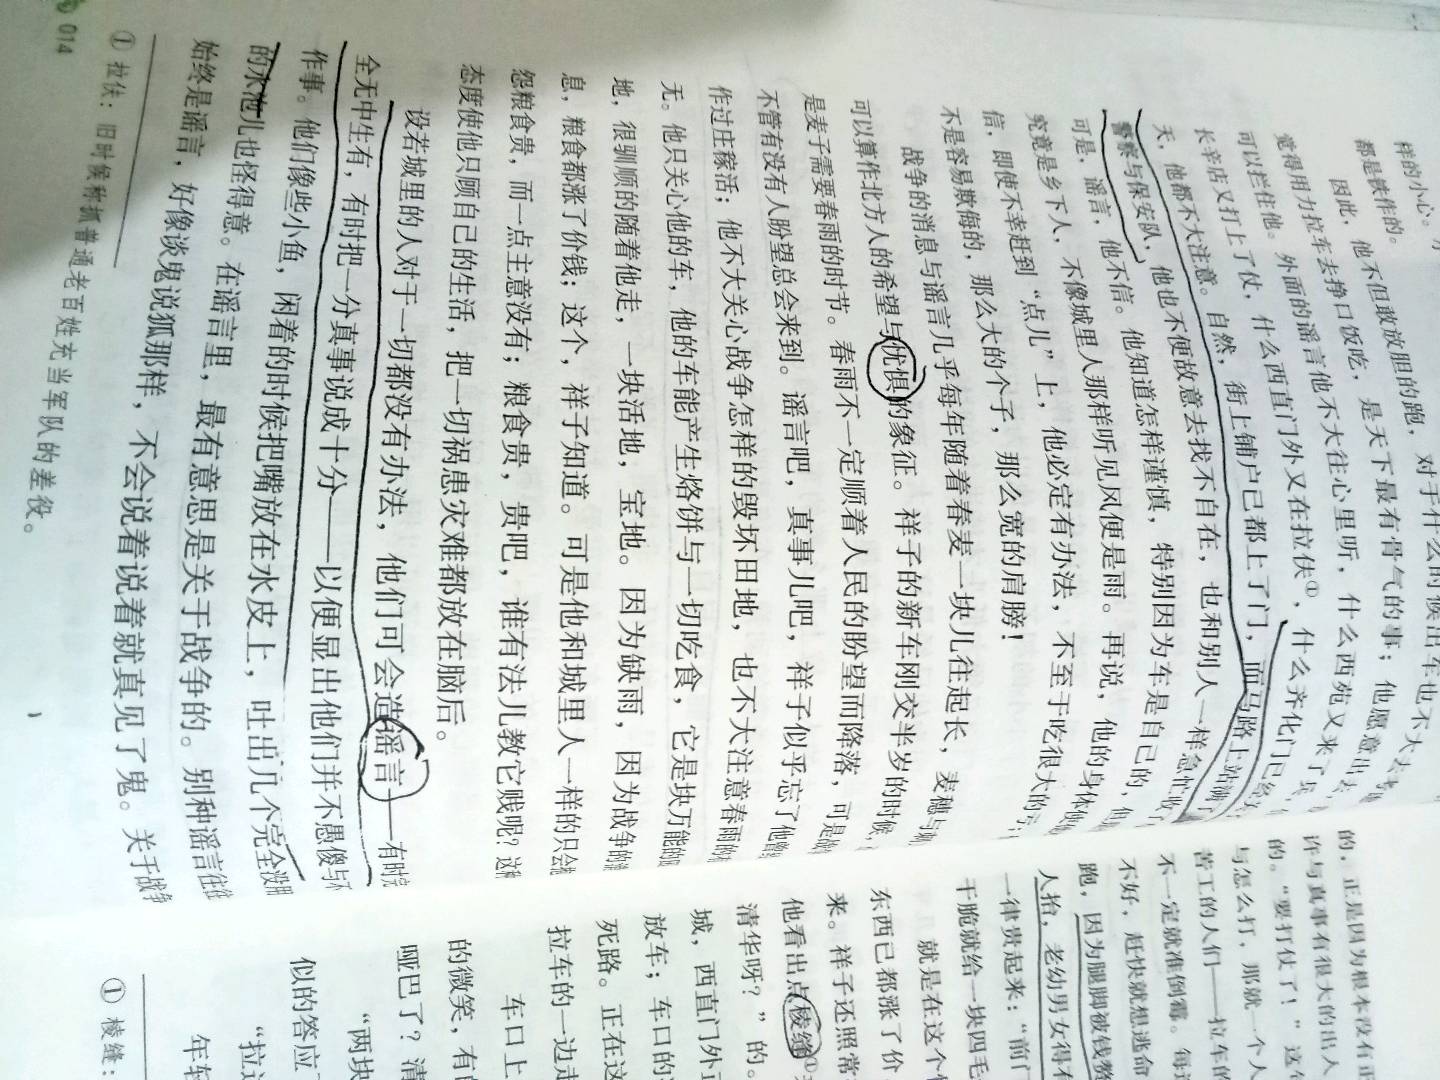 样的小心。
都是铁作的。
因此，他不但敢放胆的跑，对于什么时候出车也不大去考
觉得用力拉车去挣口饭吃，是天下最有骨气的事；他愿意出去，
可以拦住他。外面的谣言他不大往心里听，什么西苑又来了兵，
长辛店又打上了仗，什么西直门外又在拉伕①，什么齐化门已
天，他都不大注意。自然，街上铺户已都上了门，而马路上站满
警察与保安队，他也不便故意去找不自在，也和别人一样急忙收
可是，谣言，他不信。他知道怎样谨慎，特别因为车是自己的，
究竟是乡下人，不像城里人那样听见风便是雨。再说，他的身体
信，即使不幸赶到“点儿”上，他必定有办法，不至于吃很大的
不是容易欺侮的，那么大的个子，那么宽的肩膀！
战争的消息与谣言几乎每年随着春麦一块儿往起长，麦穗与
可以算作北方人的希望与忧惧的象征。祥子的新车刚交半岁的时候，
是麦子需要春雨的时节。春雨不一定顺着人民的盼望而降落，可是
不管有没有人盼望总会来到。谣言吧，真事儿吧，祥子似乎忘了他曾
作过庄稼活；他不大关心战争怎样的毁坏田地，也不大注意春雨的
无。他只关心他的车，他的车能产生烙饼与一切吃食，它是块万能的
地，很驯顺的随着他走，一块活地，宝地。因为缺雨，因为战争的
息，粮食都涨了价钱；这个，祥子知道。可是他和城里人一样的只会
怨粮食贵，而一点主意没有；粮食贵，贵吧，谁有法儿教它贱呢？这
态度使他只顾自己的生活，把一切祸患灾难都放在脑后。
设若城里的人对于一切都没有办法，他们可会造谣言——有时完
全无中生有，有时把一分真事说成十分——以便显出他们并不愚傻与不
作事。他们像些小鱼，闲着的时候把嘴放在水皮上，吐出几个完全没用
的水泡儿也怪得意。在谣言里，最有意思是关于战争的。别种谣言往往
始终是谣言，好像谈鬼说狐那样，不会说着说着就真见了鬼。关于战争
① 拉伕：旧时候称抓普通老百姓充当军队的差役。
014
的，正是因为根本没有正
许与真事有很大的出入
的。“要打仗了！”这
与怎么打，那就一个人
苦工的人们——拉车的
不一定就准倒霉。每
不好，赶快就想逃命
跑，因为腿脚被钱赘
人抬，老幼男女得有
一律贵起来：“前门
干脆就给一块四毛
就是在这个
东西已都涨了价
来。祥子还照常
他看出点棱缝①
清华呀？”的。
城，西直门外
放车；车口的
死路。正在这
拉车的一边走
车口上
的微笑，有
哑巴了？清
“两块
似的答应
“拉
年轻
① 棱缝：